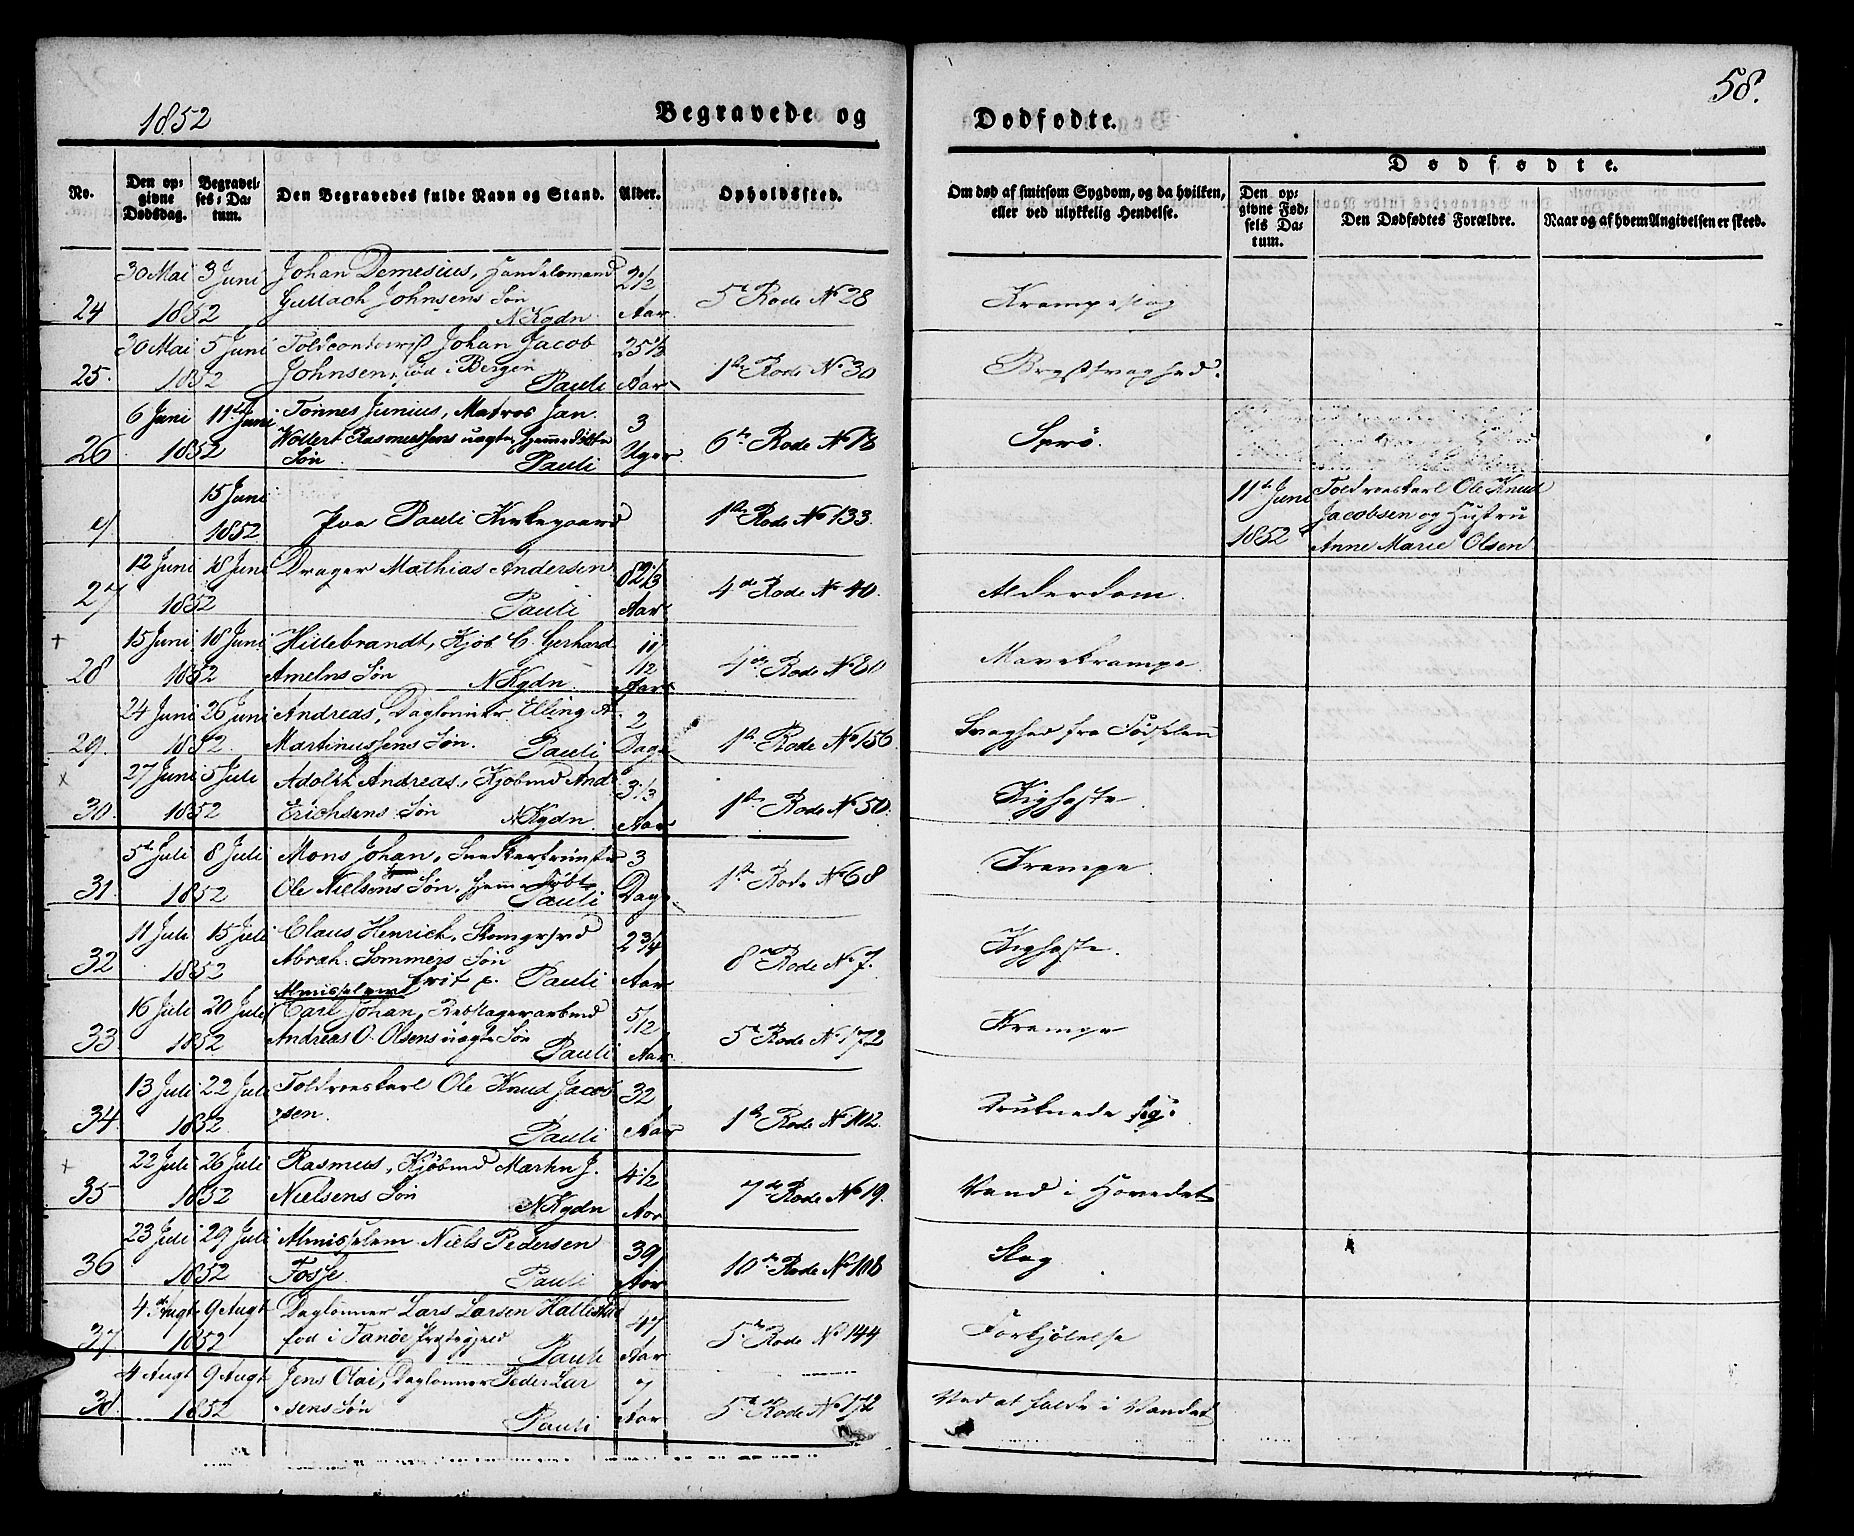 1852
Begravede og
Dødfødte.
58.
No.
Den op-
givne
Dødsdag.
Begravel-
ses-Da-
tum.
Den Begravedes fulde Navn og Stand.
Alder.
Opholdssted.
Om død af smitsom Sygdom, og da hvilken,
eller ved ulykkelig Hendelse.
Dødfødte.
Den op-
givne Fød-
sels Da-
tum.
Den Dødfødtes Forældre.
Naar og af hvem Angivelsen er skeed.
30 Mai 3 Juni Johan Demesius, Handelsmand 2 1/2
24 1852 Gullach Johnsens Søn N Kgdn. Aar 5t Rode No 28 Krampeslag
30 Mai 5 Juni Toldcontoirist Johan Jacob 25 1/3
25. 1852 Johnsen, fød i Bergen Pauli Aar 1ste Rode No 30 Brystsvaghed.
6 Juni 11te Juni Tønnes Junius, Matros Jan 3
26 1852 Wollert Rasmussens uægte, hjemmedøbte Uger 6te Rode No 18
Søn Pauli
15 Juni 11te Juni Toldroeskarl Ole Knud
4 1852 Paa Pauli Kirkegaard 1ste Rode No 133. 1852 Jacobsen og Hustru
Anne Marie Olsen
12 Juni 18 Juni Drager Mathias Andersen 82 1/3
27 1852 Pauli Aar 4de Rode No 40. Alderdom.
+ 15 Juni 18 Juni Hillebrandt, Kjøb. C. Gerhard 11/12
28 1852 Amelns Søn N Kgdn. Aar 4de Rode No 80 Mavekrampe
24 Juni 26 Juni Andreas, Daglønner Elling A. 2
29. 1852. Martinussens Søn. Pauli Dage 1ste Rode No 156 Svaghed fra Fødselen
x 27 Juni 5 Juli Adolph Andreas, Kjøbmd And. 3 1/3
30. 1852 Erichsens Søn N Kgdn. Aar 1ste Rode No 50. Kighoste.
5te Juli 8 Juli Mons Johan, Snedker 3
31. 1852 Ole Nielsens Søn, hjemmedøbt Pauli Dage 1ste Rode No 68 Krampe.
11 Juli 15 Juli Claus Henrich, 2 3/4
32 1852 Abrah. Sommers Søn
frit p. Pauli Aar 8de Rode No 7. Kighoste.
Almisselem
16 Juli 20 Juli Carl Johan, Rebslagerarbmd 5/12
33 1852 Andreas O. Olsens uægte Søn Pauli Aar 5te Rode No 172 Krampe
13 Juli 22 Juli Toldroeskarl Ole Knud Jacob 32
34 1852. sen. Pauli Aar 1ste Rode No 112. Druknede sig.
+ 22 Juli 26 Juli Rasmus, Kjøbmd Martin J. 4 1/2
35 1852 Nielsens Søn N Kgdn Aar 7de Rode No 19. Vand i Hovedet
23 Juli 29 Juli Almisselem Niels Pedersen 39
36 1852 Fosse Pauli Aar 10de Rode No 108 Slag
4de Augt 9 Augt Daglønner Lars Larsen 47
37 1852 fød i Fanøe Pauli Aar 5te Rode No 144 Forkjølelse
4 Augt 9 Augt Jens Olai, Daglønner Peder Lar 7
38. 1852 sens Søn Pauli Aar 5te Rode No 172 Ved at falde i Vandet